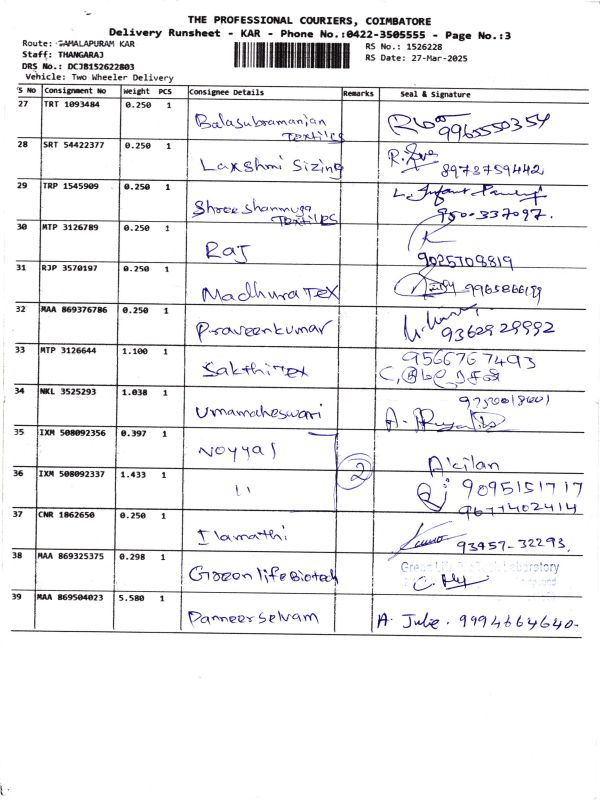 THE PROFESSIONAL COURIERS, COIMBATORE
Delivery Runsheet - KAR - Phone No.:0422-3505555 - Page No.:3
Route: SAMALAPURAM KAR
Staff: THANGARAJ
DRS No.: DCJB152622803
Vehicle: Two Wheeler Delivery
RS No.: 1526228
RS Date: 27-Mar-2025
S No Consignment No Weight PCS Consignee Details Remarks Seal & Signature
27 TRT 1093484 0.250 1 Balasubramanian Textiles 9965550354
28 SRT 54422377 0.250 1 Laxshmi Sizing 8973759442
29 TRP 1545909 0.250 1 Shree Shanmuga Textiles
30 MTP 3126789 0.250 1 Raj 9025708819
31 RJP 3570197 0.250 1 Madhura Tex
32 MAA 869376786 0.250 1 Praveenkumar 9362929992
33 MTP 3126644 1.100 1 Sakthi Tex 9566767493
34 NKL 3525293 1.038 1 Umamaheswari
35 IXM 508092356 0.397 1 Noyyal Akilan
36 IXM 508092337 1.433 1 11 2 9095151717
9677402414
37 CNR 1862650 0.250 1 Ilamathi 93457-32293.
38 MAA 869325375 0.298 1 Green life Biotech
39 MAA 869504023 5.580 1 Panneerselvam A. Julie. 9994664640.